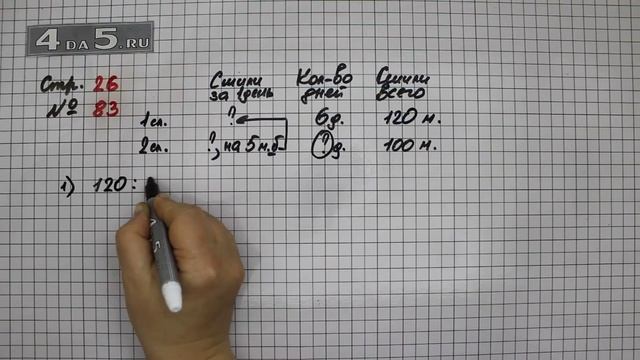 4DA5.RU
Стр. 26
№ 83
Сшили за 1 день Кол-во дней Сшили всего
1сп. ? 6д. 120 м.
2сп. ?, на 5 м. б ? д. 100 м.
1) 120 :